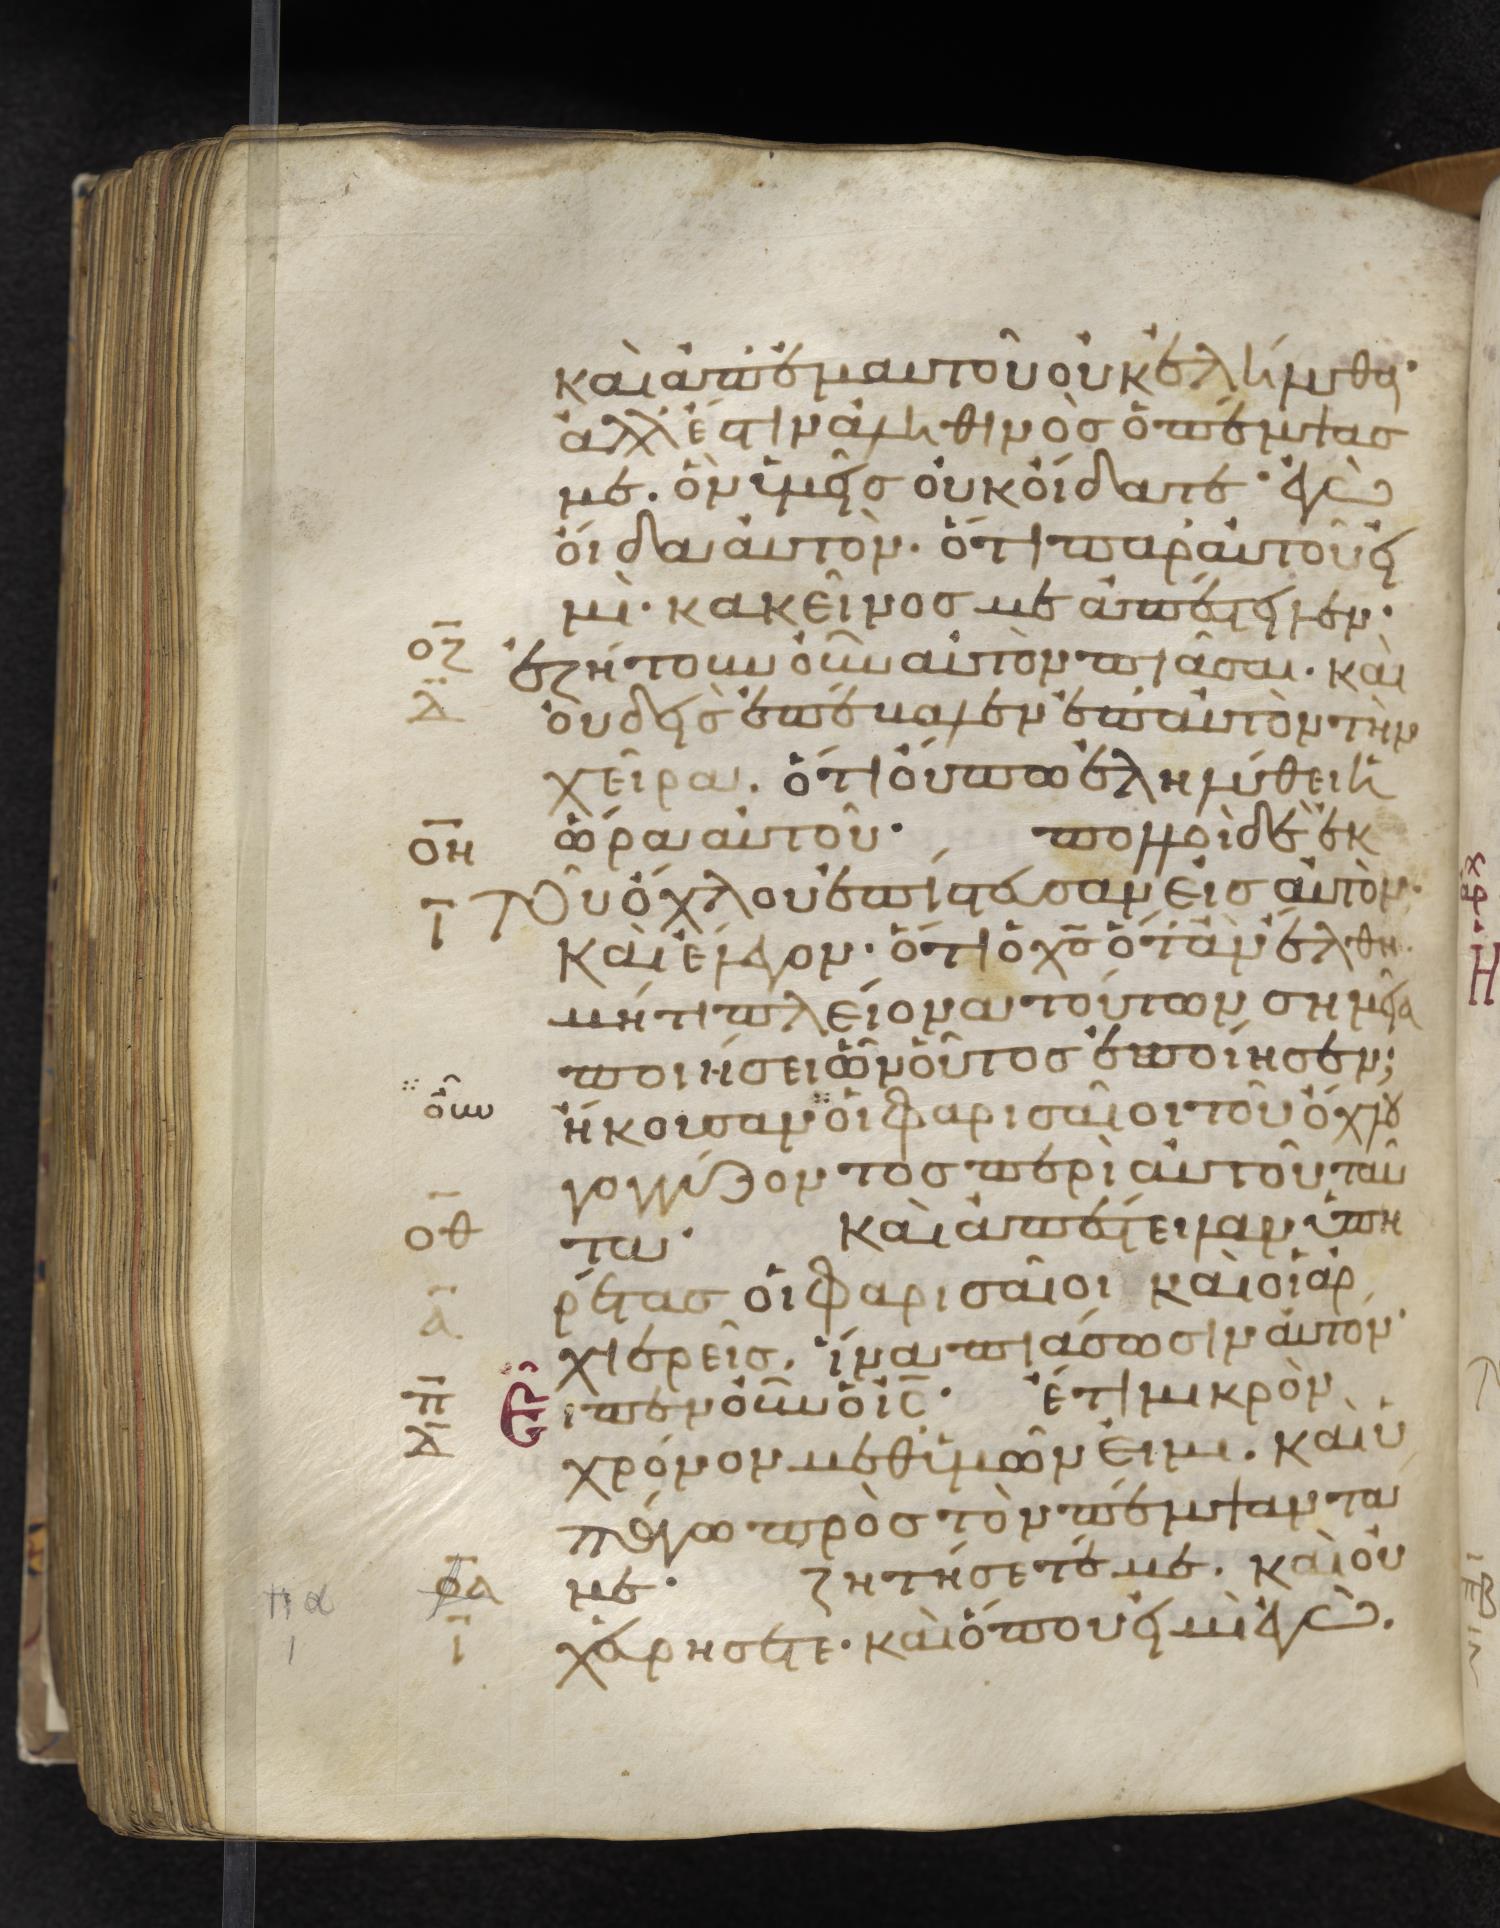 καὶ ἀπ᾽ ἐμαυτοῦ οὐκ ἐλήλυθα·
ἀλλ᾽ ἔστιν ἀληθινὸσ ὁ πέμψασ
με. ὃν ὑμεῖσ οὐκ οἴδατε· ἐγὼ
οἶδα αὐτὸν. ὅτι παρ᾽ αὐτοῦ εἰ
μὶ· κακεῖνοσ με ἀπέστειλεν·
οζ ἐζήτουν οὖν αὐτὸν πιᾶσαι. καὶ
δ οὐδεὶσ ἐπέβαλεν ἐπ᾽ αὐτὸν τὴν
χεῖρα. ὅτι οὔπω ἐληλύθει ἡ
οη ὥρα αὐτοῦ· πολλοὶ δὲ ἐκ
ι τοῦ ὄχλου ἐπίστευσαν εἰσ αὐτὸν·
καὶ ἔλεγον· ὅτι ὁ χσ ὅταν ἔλθη.
μήτι πλείονα τούτων σημεῖα
ποιήσει ὧν οὗτοσ ἐποίησεν;
οὖν ἤκουσαν οἱ φαρισαῖοι τοῦ ὄχλου
γογγύζοντοσ περὶ αὐτοῦ ταῦ
οθ τα· καὶ ἀπέστειλαν ὑπη
α ρέτασ οἱ φαρισαῖοι καὶ οἱ ἀρ
χιερεῖσ. ἵνα πιάσωσιν αὐτόν·
π Εἶπεν οὖν ὁ ισ· ἔτι μικρὸν
δ χρόνον μεθ᾽ ὑμῶν εἰμι. καὶ ὑ
πάγω πρὸσ τὸν πέμψαντα
πα οα με· ζητήσετέ με. καὶ οὐ
ι χ᾽ εὑρήσετε· καὶ ὅπου εἰμὶ ἐγὼ.